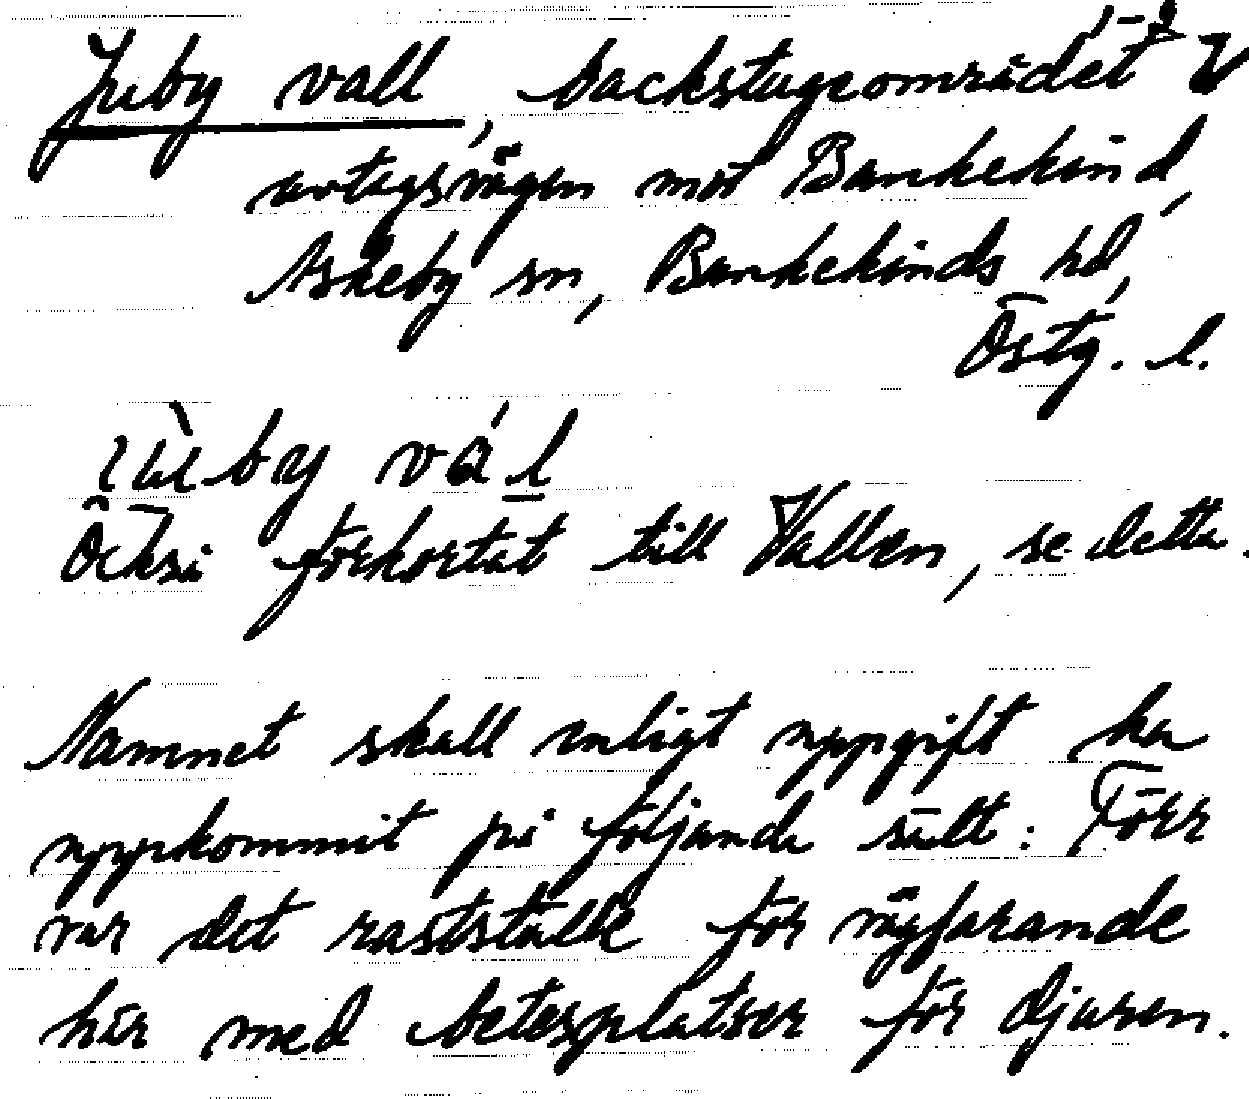 Juby vall, backstugeområdet V
avtagsvägen mot Bankekind,
Askeby sn, Bankekinds hd,
Östg. l.
ɩùby vál
Också förkortat till Vallen, se detta.
Namnet skall enligt uppgift ha
uppkommit på följande sätt: Förr
var det rastställe för vägfarande
här med betesplatser för djuren.